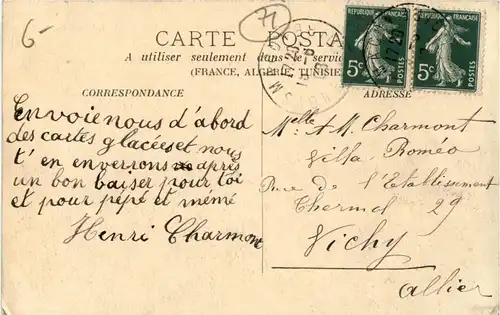 6-
71
CARTE POSTA
A utiliser seulement dans le servic
(FRANCE, ALGÉRIE, TUNISIE
CORRESPONDANCE
ADRESSE
RÉPUBLIQUE FRANÇAISE
5c POSTES
RÉPUBLIQUE FRANÇAISE
5c POSTES
17 20
Envoie nous d'abord
des cartes glacées et nous
t'en enverrons après
un bon baiser pour toi
et pour pépé et mémé
Henri Charmont
Melle A M. Charmont
Villa Roméo
Rue de l'Etablissement
Thermal 29
Vichy
Allier